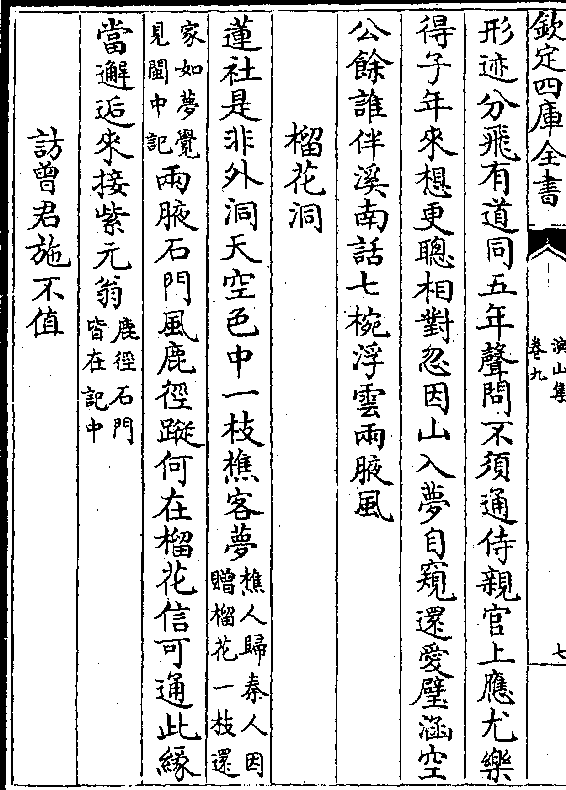 欽定四庫全書
演山集
卷九
七
形迹分飛有道同五年聲問不須通侍親官上應尤樂
得子年來想更聰相對忽因山入夢自窺還愛壁涵空
公餘誰伴溪南話七椀浮雲兩腋風
榴花洞
蓮社是非外洞天空色中一枝樵客夢樵人歸秦人因贈榴花一枝還
家如夢覺見閩中記兩腋石門風鹿徑蹤何在榴花信可通此緣
當邂逅來接紫元翁鹿徑石門皆在記中
訪曾君施不值